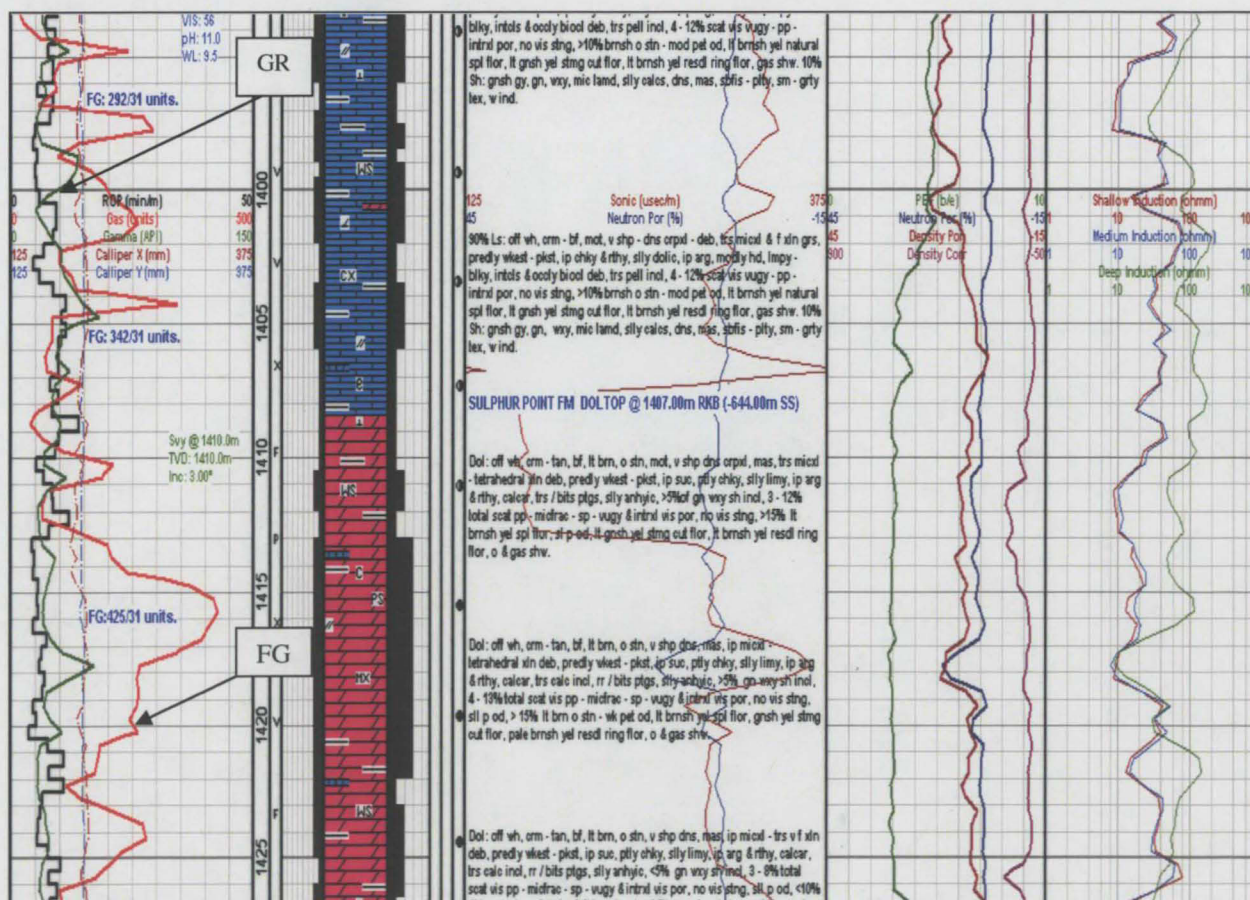 VIS: 56
pH: 11.0
WL: 9.5
GR
FG: 292/31 units.
1400
ROP (min/m) 50
Gas (units) 500
Gamma (API) 150
125 Calliper X (mm) 375
125 Calliper Y (mm) 375
FG: 342/31 units.
1405
Svy @ 1410.0m
TVD: 1410.0m
Inc: 3.00°
1410
FG:425/31 units.
1415
FG
1420
1425
WS
CX
WS
C
PS
MX
WS
blky, intcls & occly biocl deb, trs pell incl, 4 - 12% scat vis vugy - pp -
intrxl por, no vis stng, >10% brnsh o stn - mod pet od, lt brnsh yel natural
spl flor, lt gnsh yel stmg cut flor, lt brnsh yel resdl ring flor, gas shw. 10%
Sh: gnsh gy, gn, wxy, mic lamd, slly calcs, dns, mas, sbfis - plty, sm - grty
tex, w ind.
125 Sonic (usec/m) 375
45 Neutron Por (%) -15
90% Ls: off wh, crm - bf, mot, v shp - dns crpxl - deb, trs micxl & f xln grs,
predly wkpst - pkst, ip chky & rthy, slly dolic, ip arg, modly hd, lmpy -
blky, intcls & occly biocl deb, trs pell incl, 4 - 12% scat vis vugy - pp -
intrxl por, no vis stng, >10% brnsh o stn - mod pet od, lt brnsh yel natural
spl flor, lt gnsh yel stmg cut flor, lt brnsh yel resdl ring flor, gas shw. 10%
Sh: gnsh gy, gn, wxy, mic lamd, slly calcs, dns, mas, sbfis - plty, sm - grty
tex, w ind.
SULPHUR POINT FM DOL TOP @ 1407.00m RKB (-644.00m SS)
Dol: off wh, crm - tan, bf, lt brn, o stn, mot, v shp dns crpxl, mas, trs micxl
- tetrahedral xln deb, predly wkest - pkst, ip suc, ptly chky, slly limy, ip arg
& rthy, calcar, trs / bits ptgs, slly anhyic, >5% of gn wxy sh incl, 3 - 12%
total scat pp - micfrac - sp - vugy & intrxl vis por, no vis stng, >15% lt
brnsh yel spl flor, sl p od, lt gnsh yel stmg cut flor, lt brnsh yel resdl ring
flor, o & gas shw.
Dol: off wh, crm - tan, bf, lt brn, o stn, v shp dns, mas, ip micxl -
tetrahedral xln deb, predly wkest - pkst, ip suc, ptly chky, slly limy, ip arg
& rthy, calcar, trs calc incl, rr / bits ptgs, slly anhyic, >5% gn wxy sh incl,
4 - 13% total scat vis pp - micfrac - sp - vugy & intrxl vis por, no vis stng,
sll p od, > 15% lt brn o stn - wk pet od, lt brnsh yel spl flor, gnsh yel stmg
cut flor, pale brnsh yel resdl ring flor, o & gas shw.
Dol: off wh, crm - tan, bf, lt brn, o stn, v shp dns, mas, ip micxl - trs v f xln
deb, predly wkest - pkst, ip suc, ptly chky, slly limy, ip arg & rthy, calcar,
trs calc incl, rr / bits ptgs, slly anhyic, <5% gn wxy sh incl, 3 - 8% total
scat vis pp - micfrac - sp - vugy & intrxl vis por, no vis stng, sll p od, <10%
PE (b/e) 10
45 Neutron Por (%) -15
Density Por -15
Density Corr -50
Shallow Induction (ohmm)
10 100
Medium Induction (ohmm)
10 100
Deep Induction (ohmm)
10 100